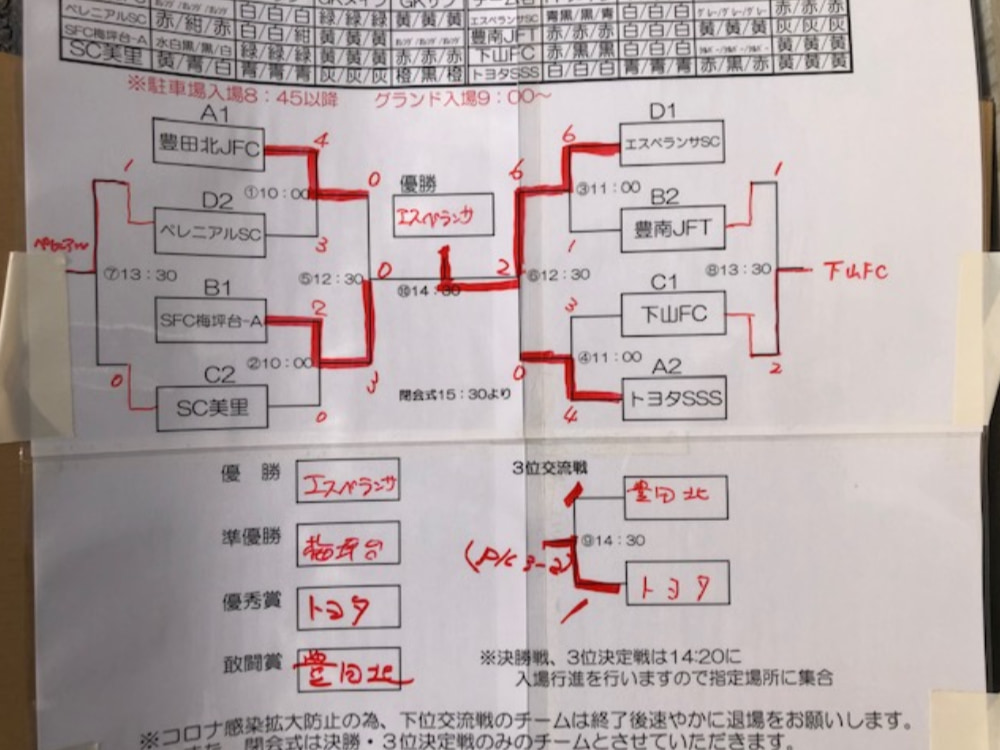 ベレニアルSC 赤/紺/赤 白/白/白 緑/緑/緑 黄/黄/黄 エスペランサSC 青黒/黒/青 白/白/白 黄/黄/黄 赤/赤/赤
SFC梅坪台-A 水白黒/黒/白 白/白/紺 黄/黄/黄 豊南JFT 赤/赤/赤 白/白/白
SC美里 黄/青/白 青/青/青 灰/灰/灰 橙/黒/橙 トヨタSSS 白/白/白 青/青/青 赤/黒/赤 灰/灰/灰
※駐車場入場8：45以降 グランド入場9：00〜
A1 D1
豊田北JFC 4 6 エスペランサSC
1 0 優勝 6 1
①10：00 ③11：00
D2 エスペランサ B2
ペレニアルSC 3 1 豊南JFT
⑦13：30 ⑤12：30 0 2 ⑥12：30 ⑧13：30 下山FC
⑩14：30
B1 C1
SFC梅坪台-A 2 3 下山FC
②10：00 ④11：00
0 C2 3 0 A2 2
閉会式15：30より
SC美里 0 4 トヨタSSS
優 勝 エスペランサ 3位交流戦
豊田北
準優勝 梅坪台 (P/K 3-2) ⑨14：30
優秀賞 トヨタ トヨタ
敢闘賞 豊田北
※決勝戦、3位決定戦は14:20に
入場行進を行いますので指定場所に集合
※コロナ感染拡大防止の為、下位交流戦のチームは終了後速やかに退場をお願いします。
また、閉会式は決勝・3位決定戦のみのチームとさせていただきます。